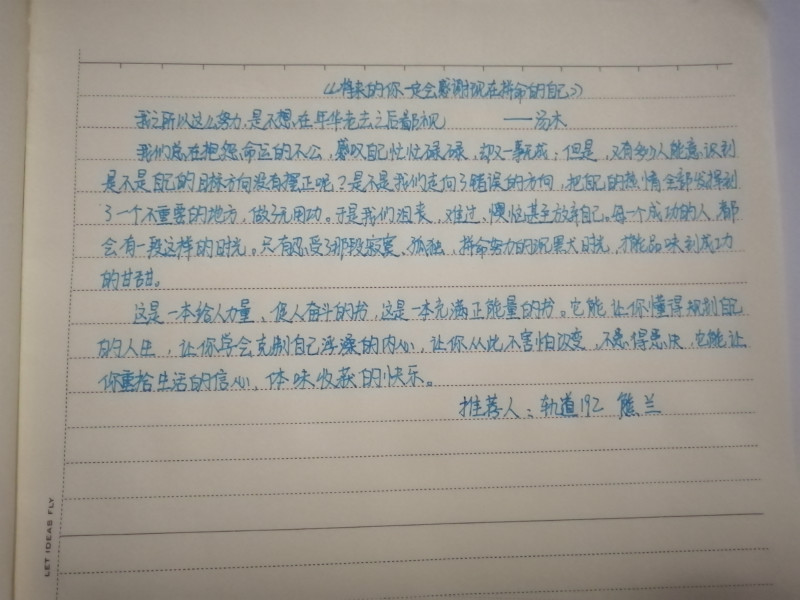 《将来的你一定会感谢现在拼命的自己》
我之所以这么努力,是不想在年华老去之后鄙视 ——汤木
我们总在抱怨命运的不公,慕叹自己忙忙碌碌,却又一事无成;但是,又有多少人能意识到
是不是自己的目标方向没有摆正呢?是不是我们走向了错误的方向,把自己的热情全部发挥到
了一个不重要的地方,做了无用功。于是我们沮丧,难过、懊恼甚至放弃自己。每一个成功的人,都
会有一段这样的时光。只有忍受了那段寂寞、孤独,拼命努力的沉默大时光,才能品味到成功
的甘甜。
这是一本给人力量、促人奋斗的书,这是一本充满正能量的书。它能让你懂得规划自己
的人生,让你学会克制自己浮澡的内心,让你从此不害怕改变,不患得患失,它能让
你重拾生活的信心,体味收获的快乐。
推荐人:轨道192 熊兰
LET IDEAS FLY